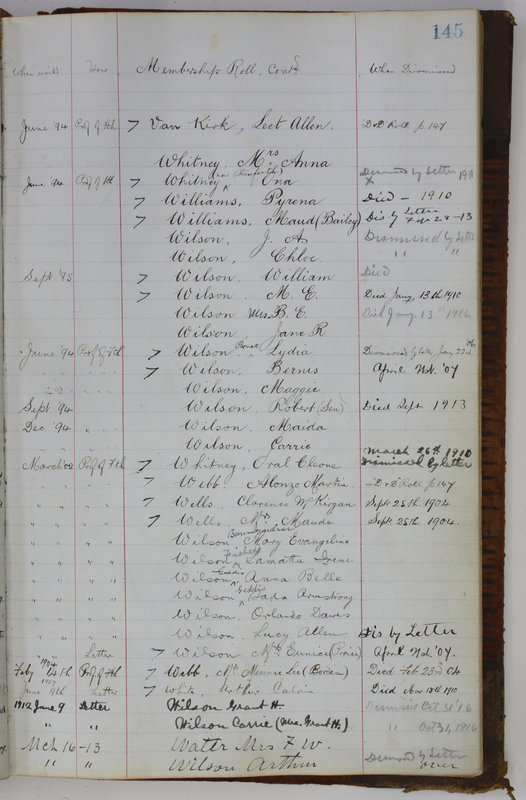 145
When rec'd How Memberships Roll, Cont'd When Dismissed
June '94 Prof of Fth 7 Van Kirk, Leet Allen. D & D Roll p 147
Whitney. Mrs Anna
June '94 Prof of fth 7 Whitney Ona Dismissed by Letter 1911
7 Williams, Pyrena Died - 1910
7 Williams, Maud (Bailey) Dis by Letter Feb 28-13
Wilson, J. A. Dismissed by Letter
Wilson, Chloe. " "
Sept '95 7 Wilson. William Died
7 Wilson M. E. Died Jany 13th 1910
Wilson Mrs. B. E. Died Jany. 13th 1916
Wilson Jane R.
June '94 Prof of Fth 7 Wilson Lydia Dismissed by let. Jany 22nd '06
7 Wilson, Bernis April Not. '07
Wilson, Maggie
Sept 94 Wilson, Robert (Sen) Died Sept 1913
Dec '94 Wilson, Maida
Wilson, Carrie March 26th 1910
March '02 Prof of Fth 7 Whitney, Oral Cleone Dismissed by letter
" " " 7 Webb. Alonzo Martin. D & D Roll p 147
" " " 7 Wells, Clarence McKirgan Sept 25th 1904
" " " 7 Wells Mrs Maude Sept 25th 1904.
" " " Wilson Mary Evangeline
" " " Wilson Fisher Samatta Irene
" " " Wilson Geddis Anna Belle
" " " Wilson Geddis Sada Armstrong
" " " Wilson, Orlando Davis
" " " Wilson, Lucy Allen Dis by Letter
" " Letter 7 Wilson Mrs Eunice (Price) April Not. '07.
Feby 14th 1904 Prof of Fth 7 Webb, Mrs Minnie Lee (Bowen) Died Feb 23rd 04
June 9th 1907 Letter 7 White, Arthur Calvin Died Nov 15th 1910
1912 June 9 Letter Wilson Grant H. Dismissed Oct. 31 '16
" " Wilson Carrie (Mrs. Grant H.) " Oct 31, 1916
Mch 16 - 13 Walter Mrs F W.
" " Wilson Arthur Dismissed by Letter over